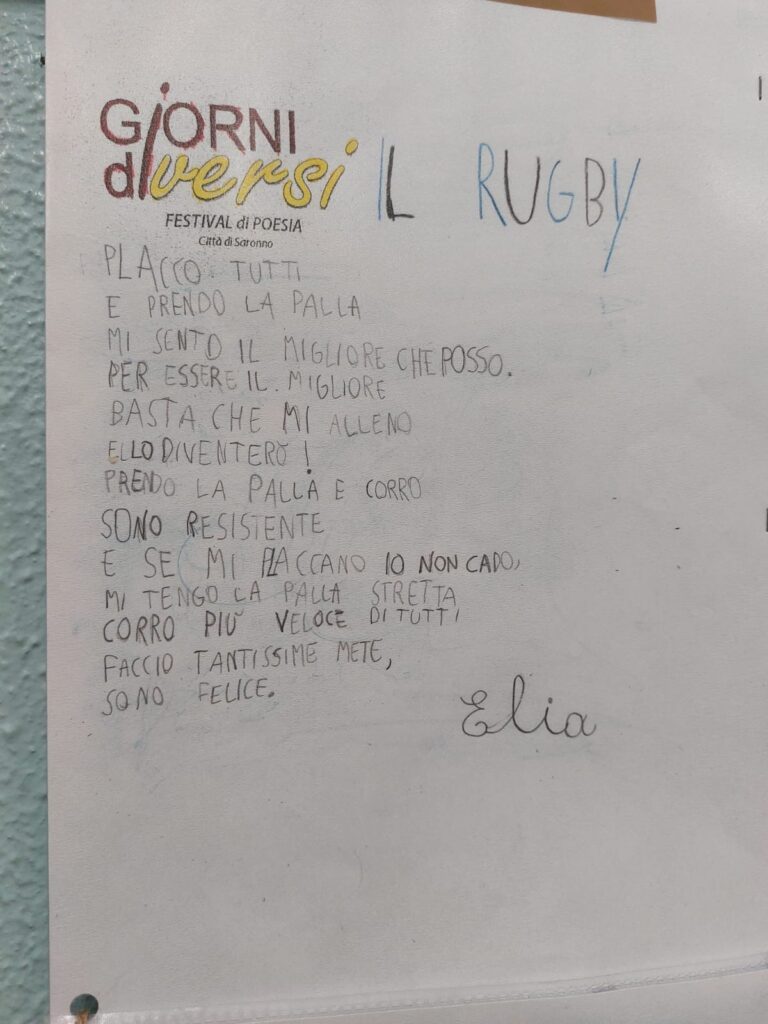 GiORNI
diversi
FESTIVAL di POESIA
Città di Saronno
IL RUGBY
PLACCO TUTTI
E PRENDO LA PALLA
MI SENTO IL MIGLIORE CHE POSSO.
PER ESSERE IL MIGLIORE
BASTA CHE MI ALLENO
E LO DIVENTERÒ!
PRENDO LA PALLA E CORRO
SONO RESISTENTE
E SE MI PLACCANO IO NON CADO,
MI TENGO LA PALLA STRETTA
CORRO PIÙ VELOCE DI TUTTI
FACCIO TANTISSIME METE,
SONO FELICE.
Elia